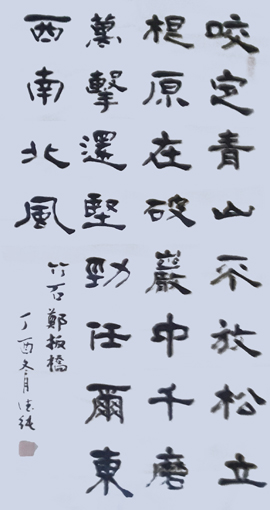 咬定青山不放松立
根原在破巖中千磨
萬擊還堅勁任爾東
西南北風
竹石鄭板橋
丁酉冬月德純